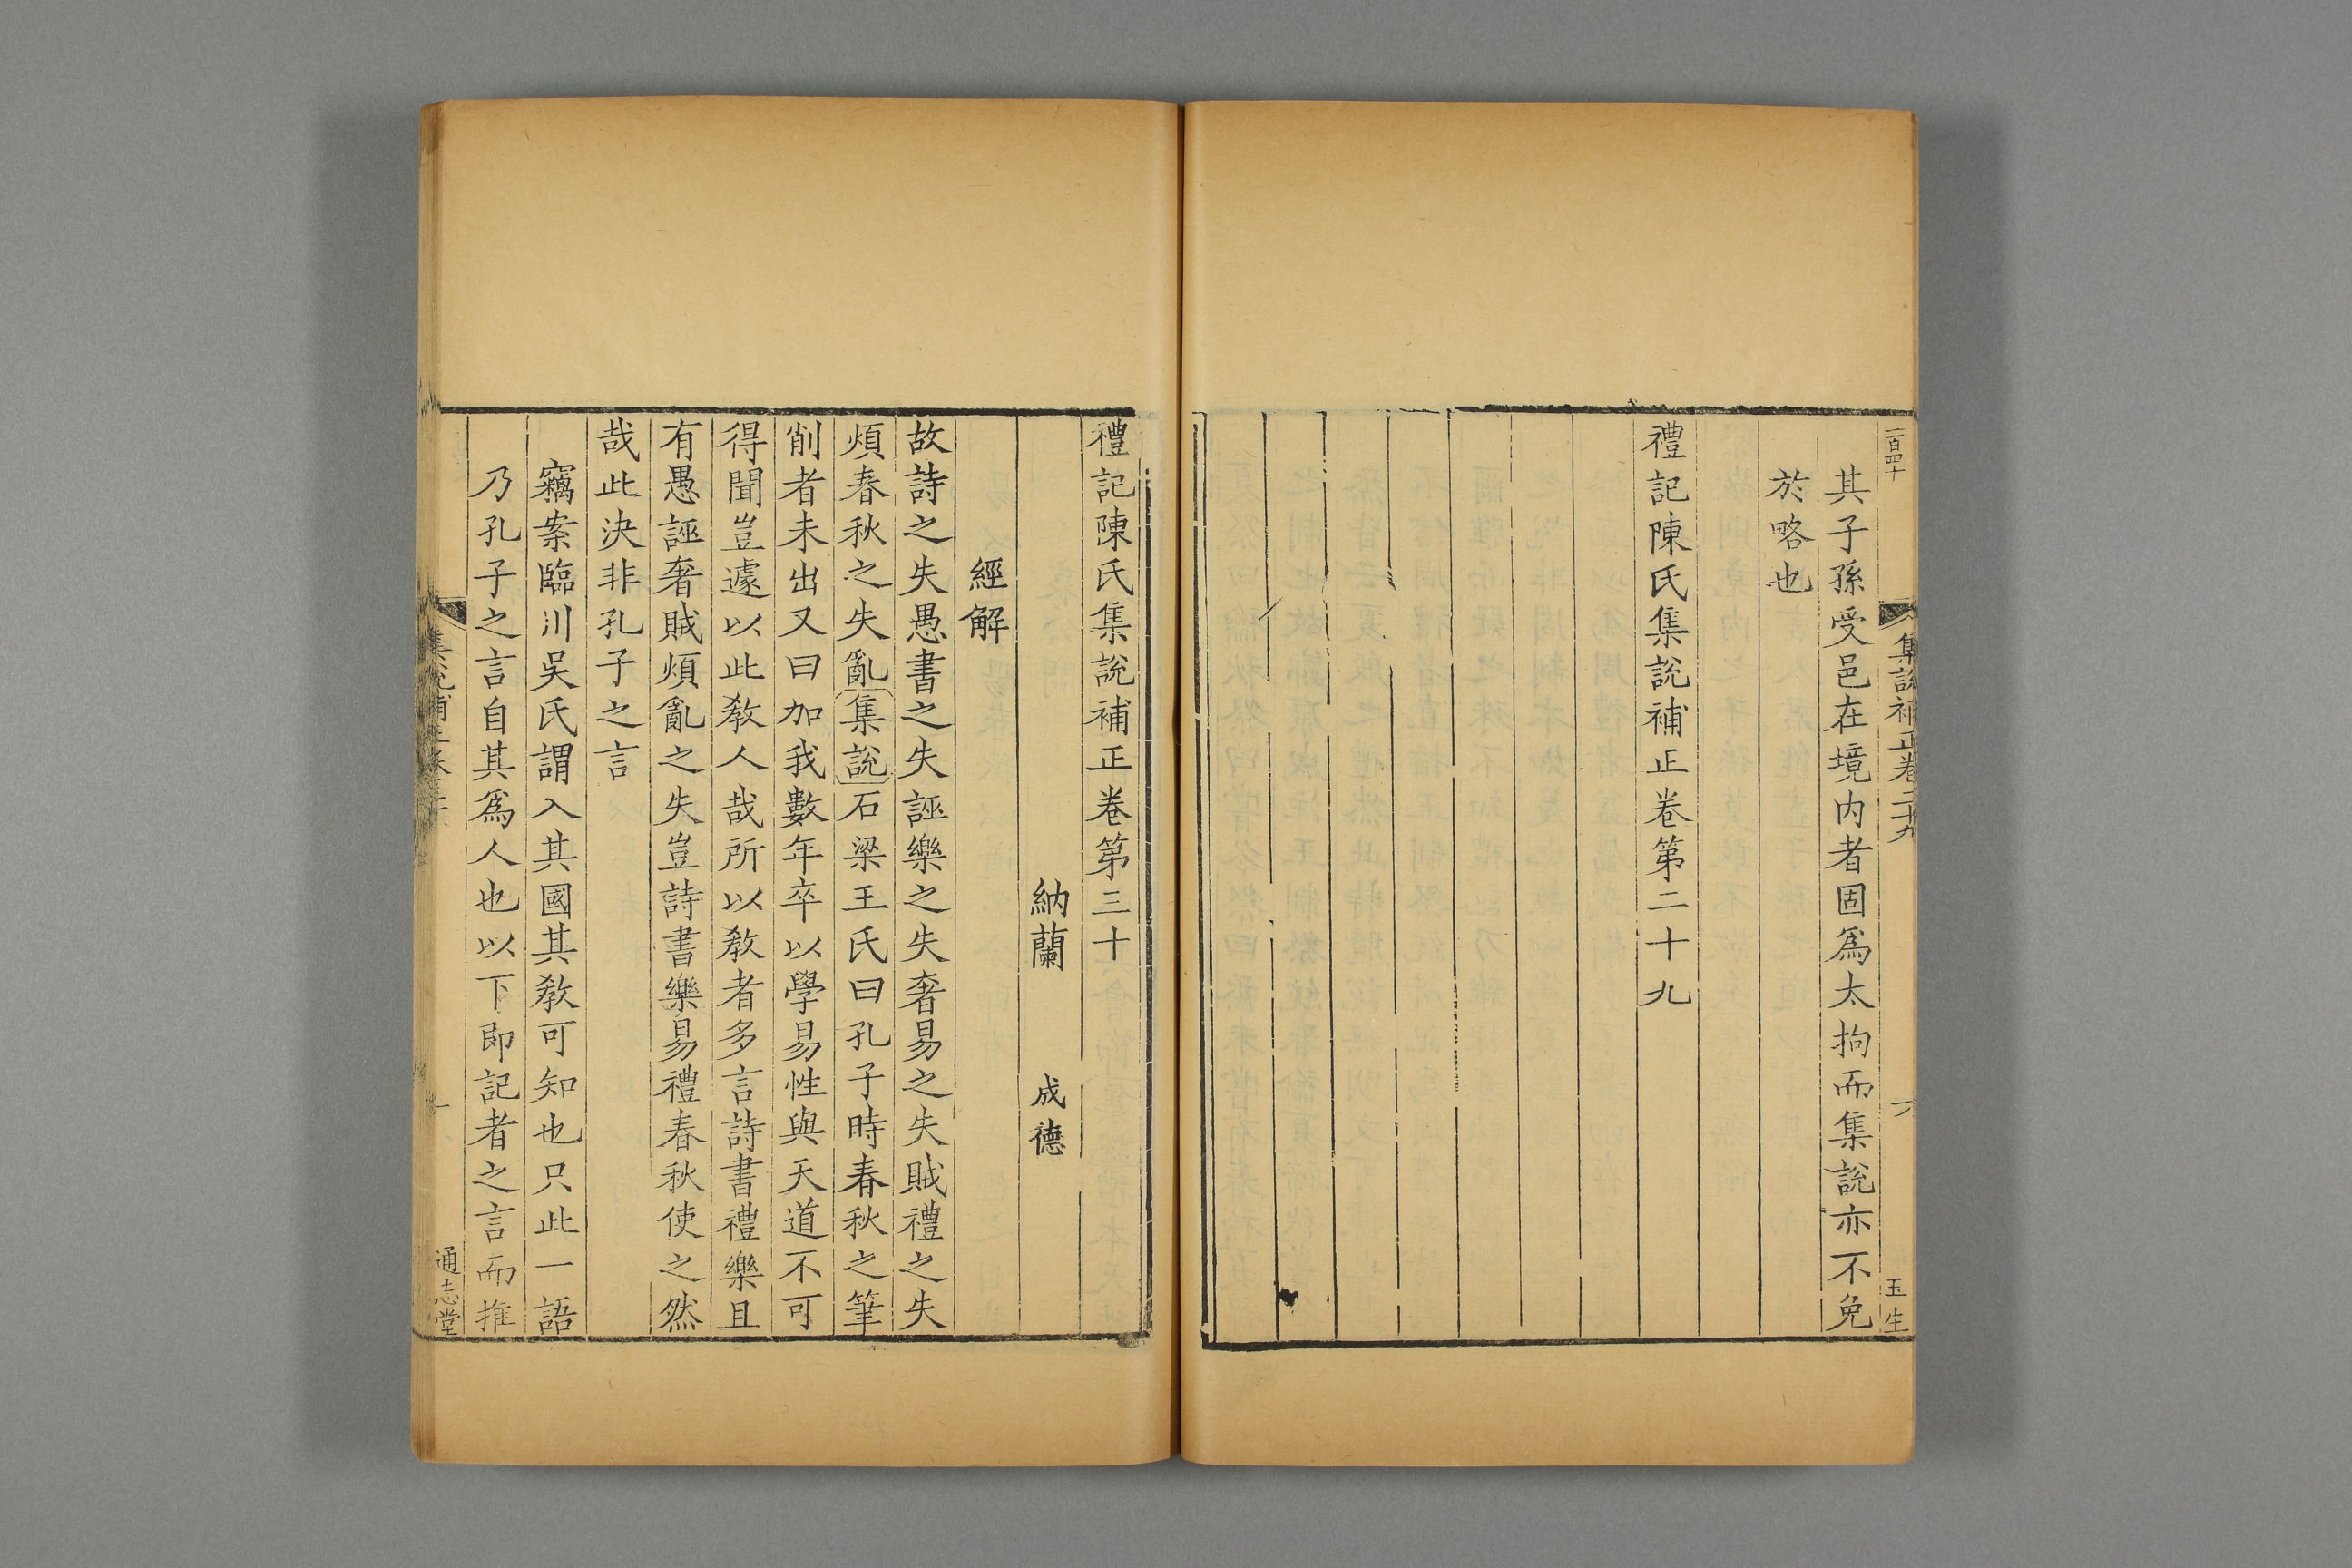 一百四十
集說補正卷二十九
玉生
其子孫受邑在境内者固爲太拘而集說亦不免
於略也
禮記陳氏集說補正卷第二十九
禮記陳氏集說補正卷第三十
納蘭成德
經解
故詩之失愚書之失誣樂之失奢易之失賊禮之失
煩春秋之失亂集說石梁王氏曰孔子時春秋之筆
削者未出又曰加我數年卒以學易性與天道不可
得聞豈遽以此敎人哉所以敎者多言詩書禮樂且
有愚誣奢賊煩亂之失豈詩書樂易禮春秋使之然
哉此決非孔子之言
竊案臨川吳氏謂入其國其敎可知也只此一語
乃孔子之言自其爲人也以下即記者之言而推
集說補正
一
通志堂